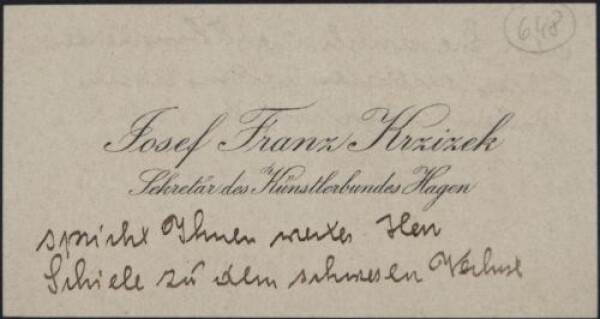 648
Josef Franz Krzizek
Sekretär des Künstlerbundes Hagen
spricht Ihnen werter Herr
Schiele zu dem schweren Verlust